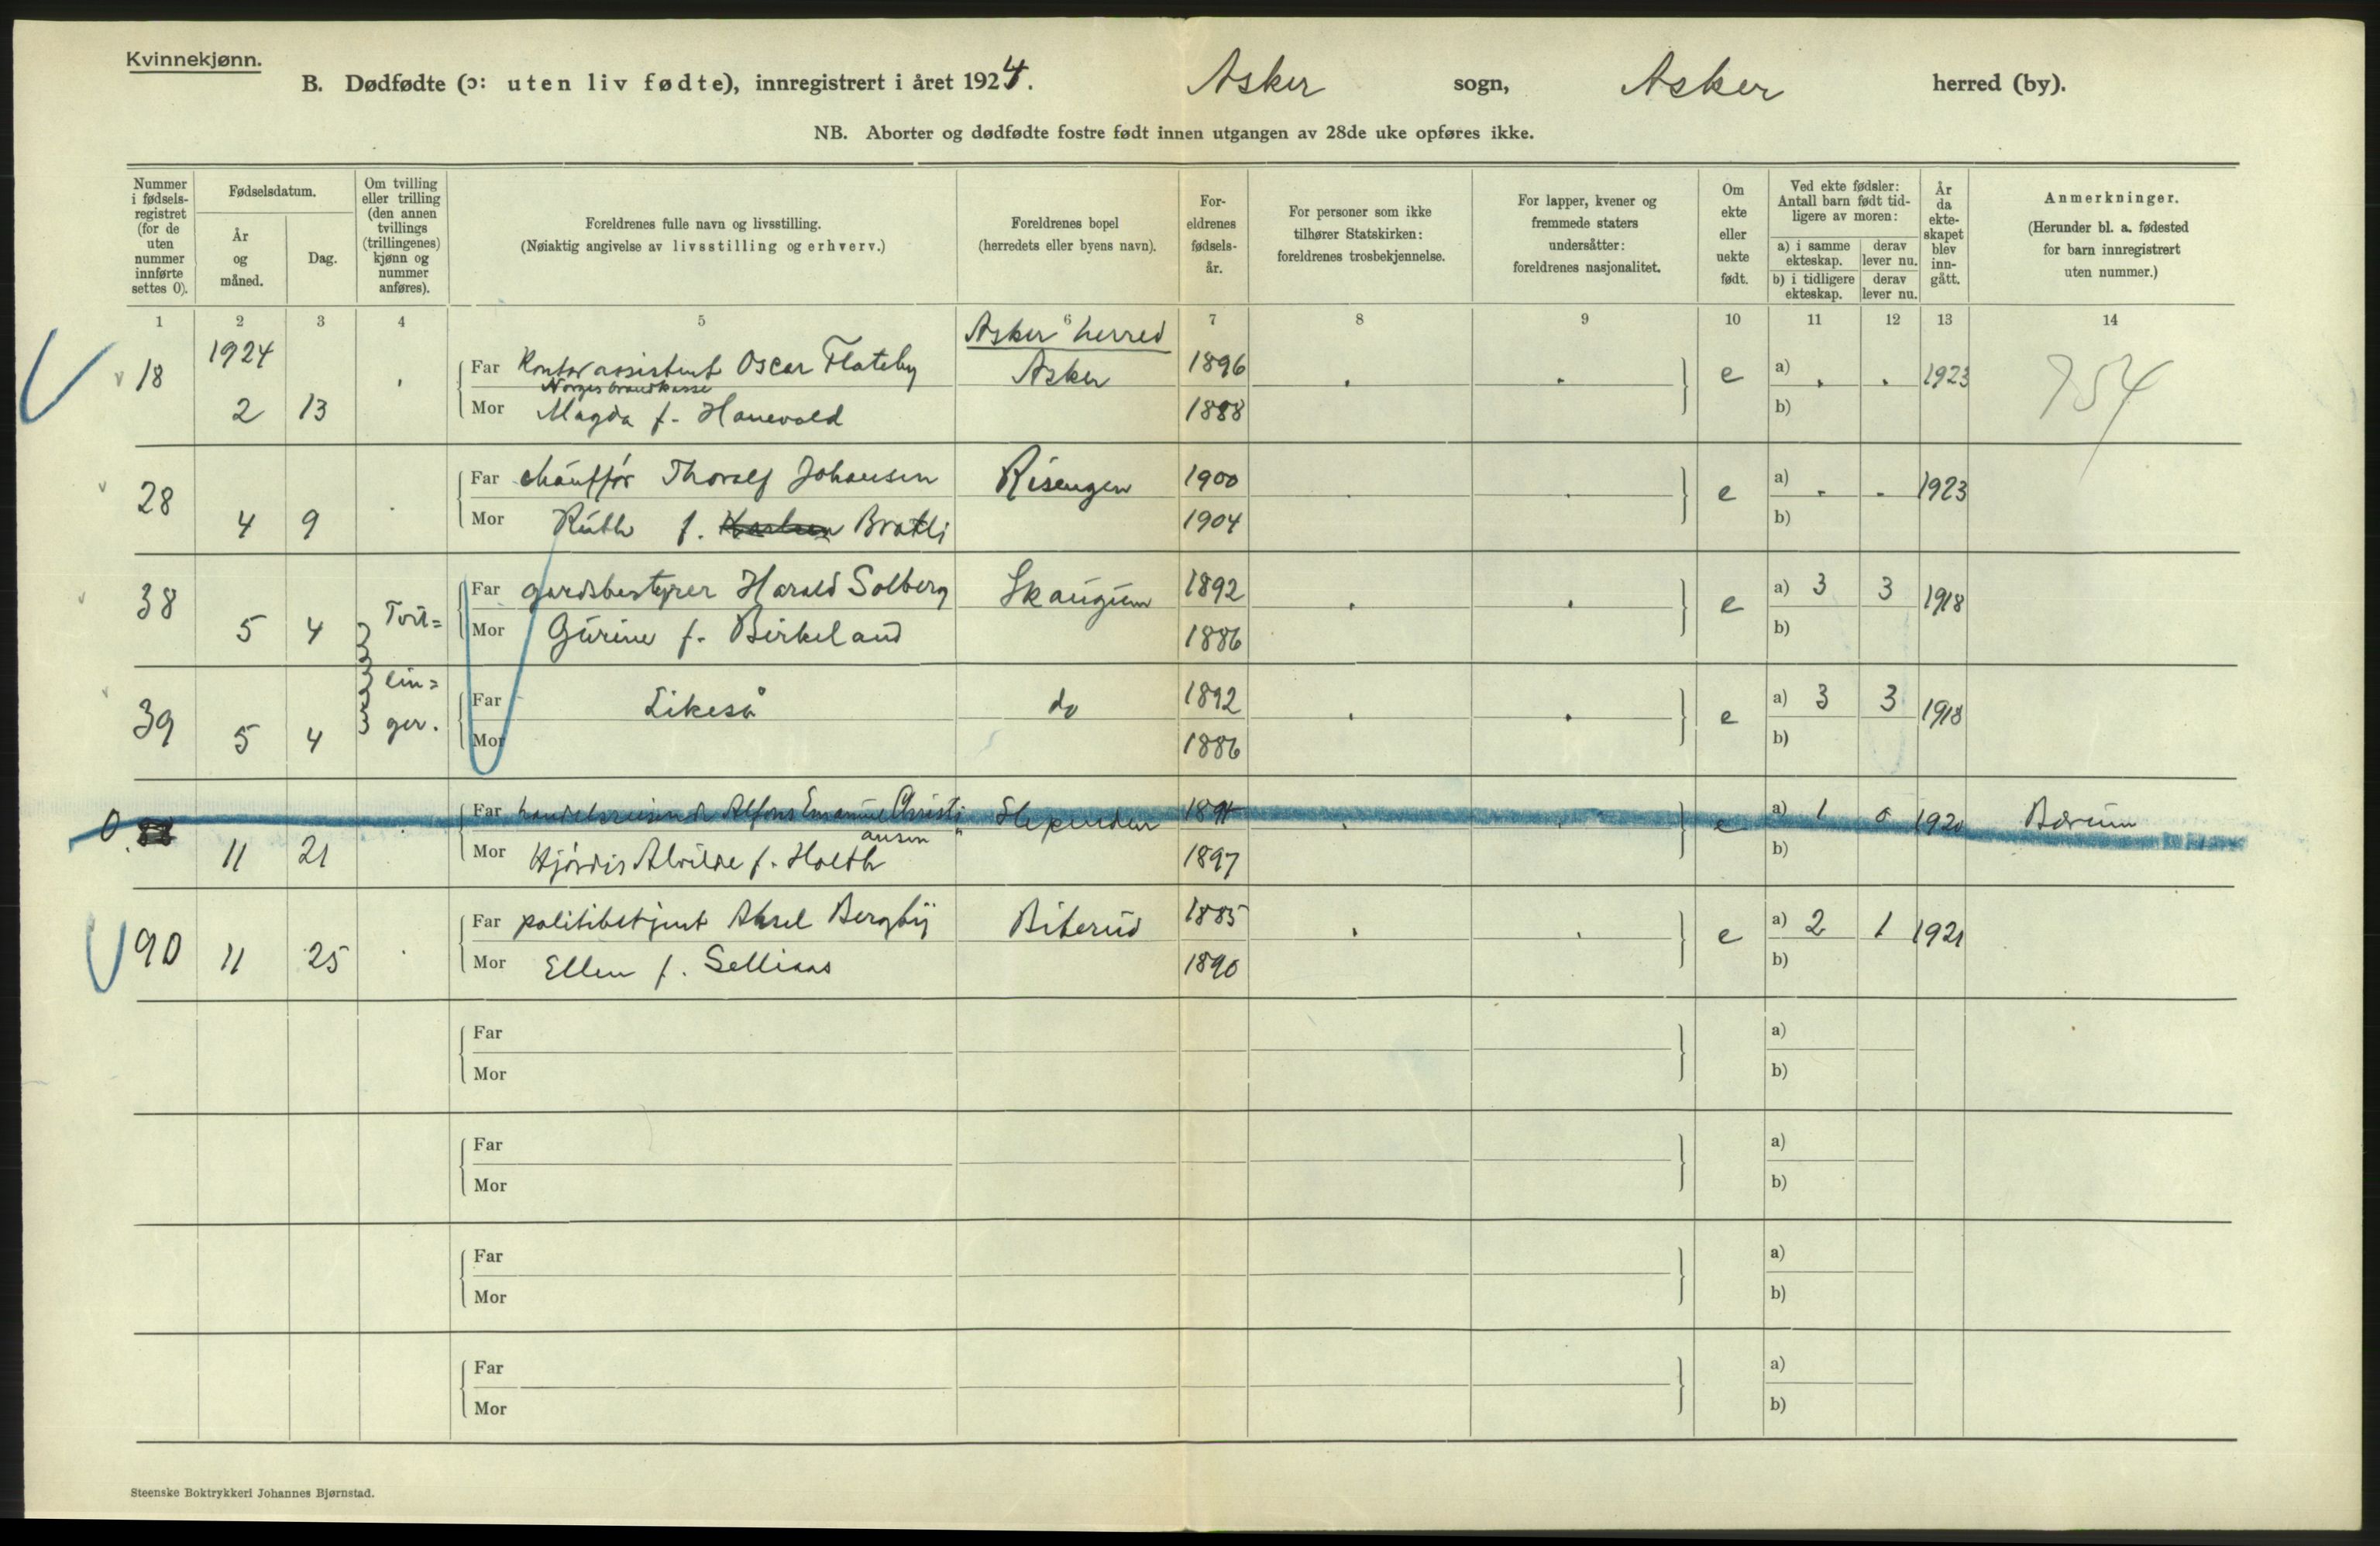 Kvinnekjønn.
B. Dødfødte (ɔ: uten liv fødte), innregistrert i året 1924. Asker sogn, Asker herred (by).
NB. Aborter og dødfødte fostre født innen utgangen av 28de uke opføres ikke.
Nummer i fødsels-registret (for de uten nummer innførte settes 0).
Fødselsdatum.
År og måned.
Dag.
Om tvilling eller trilling (den annen tvillings (trillingenes) kjønn og nummer anføres).
Foreldrenes fulle navn og livsstilling.
(Nøiaktig angivelse av livsstilling og erhverv.)
Foreldrenes bopel
(herredets eller byens navn).
For-eldrenes fødsels-år.
For personer som ikke tilhører Statskirken: foreldrenes trosbekjennelse.
For lapper, kvener og fremmede staters undersåtter: foreldrenes nasjonalitet.
Om ekte eller uekte født.
Ved ekte fødsler: Antall barn født tid-ligere av moren:
a) i samme ekteskap. derav lever nu.
b) i tidligere ekteskap. derav lever nu.
År da ekte-skapet blev inn-gått.
Anmerkninger.
(Herunder bl. a. fødested for barn innregistrert uten nummer.)
1 2 3 4 5 6 7 8 9 10 11 12 13 14
Asker herred
1924
18 2 13 Far Kontorassistent Oscar Flateby Asker 1896 e a) 1923 754
Norges brandkasse
Mor Magda f. Hanevold 1888 b)
28 4 9 Far chauffør Thoralf Johansen Risengen 1900 e a) 1923
Mor Ruth f. Bratli 1904 b)
38 5 4 Tvil= Far gardsbestyrer Harald Solberg Skaugum 1892 e a) 3 3 1918
Mor Gurine f. Birkeland 1886 b)
39 5 4 lin= ger. Far Likeså do 1892 e a) 3 3 1918
Mor 1886 b)
0. 11 21 Far handelsreisende Alfons Emanuel Christi Slependen 1891 e a) 1 0 1920 Bærum
ansen
Mor Hjørdis Alvilde f. Holth 1897 b)
90 11 25 Far politibetjent Aksel Bergby Biterud 1885 e a) 2 1 1921
Mor Ellen f. Selliaas 1890 b)
Far a)
Mor b)
Far a)
Mor b)
Far a)
Mor b)
Far a)
Mor b)
Steenske Boktrykkeri Johannes Bjørnstad.